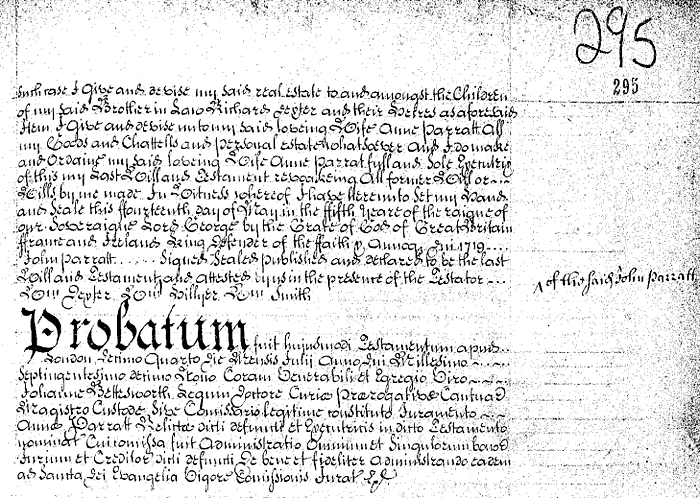 295
295
such case I Give and devise my said real estate to and amongst the Children
of my said Brother in Law Richard Peyser and their Heires as aforesaid
Item I Give and devise unto my said loveing Wife Anne Parratt All
my Goods and Chattells and Personal estate whatsoever And I do make
and Ordaine my said loveing Wife Anne Parrat full and Sole Executrix
of this my Last Will and Testament revoakeing All former Will or
Wills by me made In Witness whereof I have hereunto set my Hand
and Seale this ffourteenth Day of May in the ffifth Yeare of the raigne of
our Soveraigne Lord George by the Grace of God of Great Britain
ffrance and Ireland King Defender of the ffaith &c Annoq Dni 1719
John Parratt Signed Sealed Published and declared to be the last
Will and Testament and attested by us in the presence of the Testator
Wm Peyser Wm Hillyer Wm Smith
^ of the said John Parratt
Probatum fuit hujusmodi Testamentum apud
London Decimo Quarto die Mensis Julii Anno Dni Millesimo
Septingentesimo decimo Nono Coram Venerabili et Egregio Viro
Johanne Bettesworth Legum Doctore Curiæ Prærogativæ Cantuar
Magistro Custode Sive Comissario legitime constituto Juramento
Annæ Parratt Relictæ dicti defuncti et Executricis in dicto Testamento
nominat Cui comissa fuit Administratio Omnium et Singulorum bonorum
Jurium et Creditor dicti defuncti De bene et fideliter Administrando eadem
ad Sancta Dei Evangelia Vigore Comissionis Jurat Exd